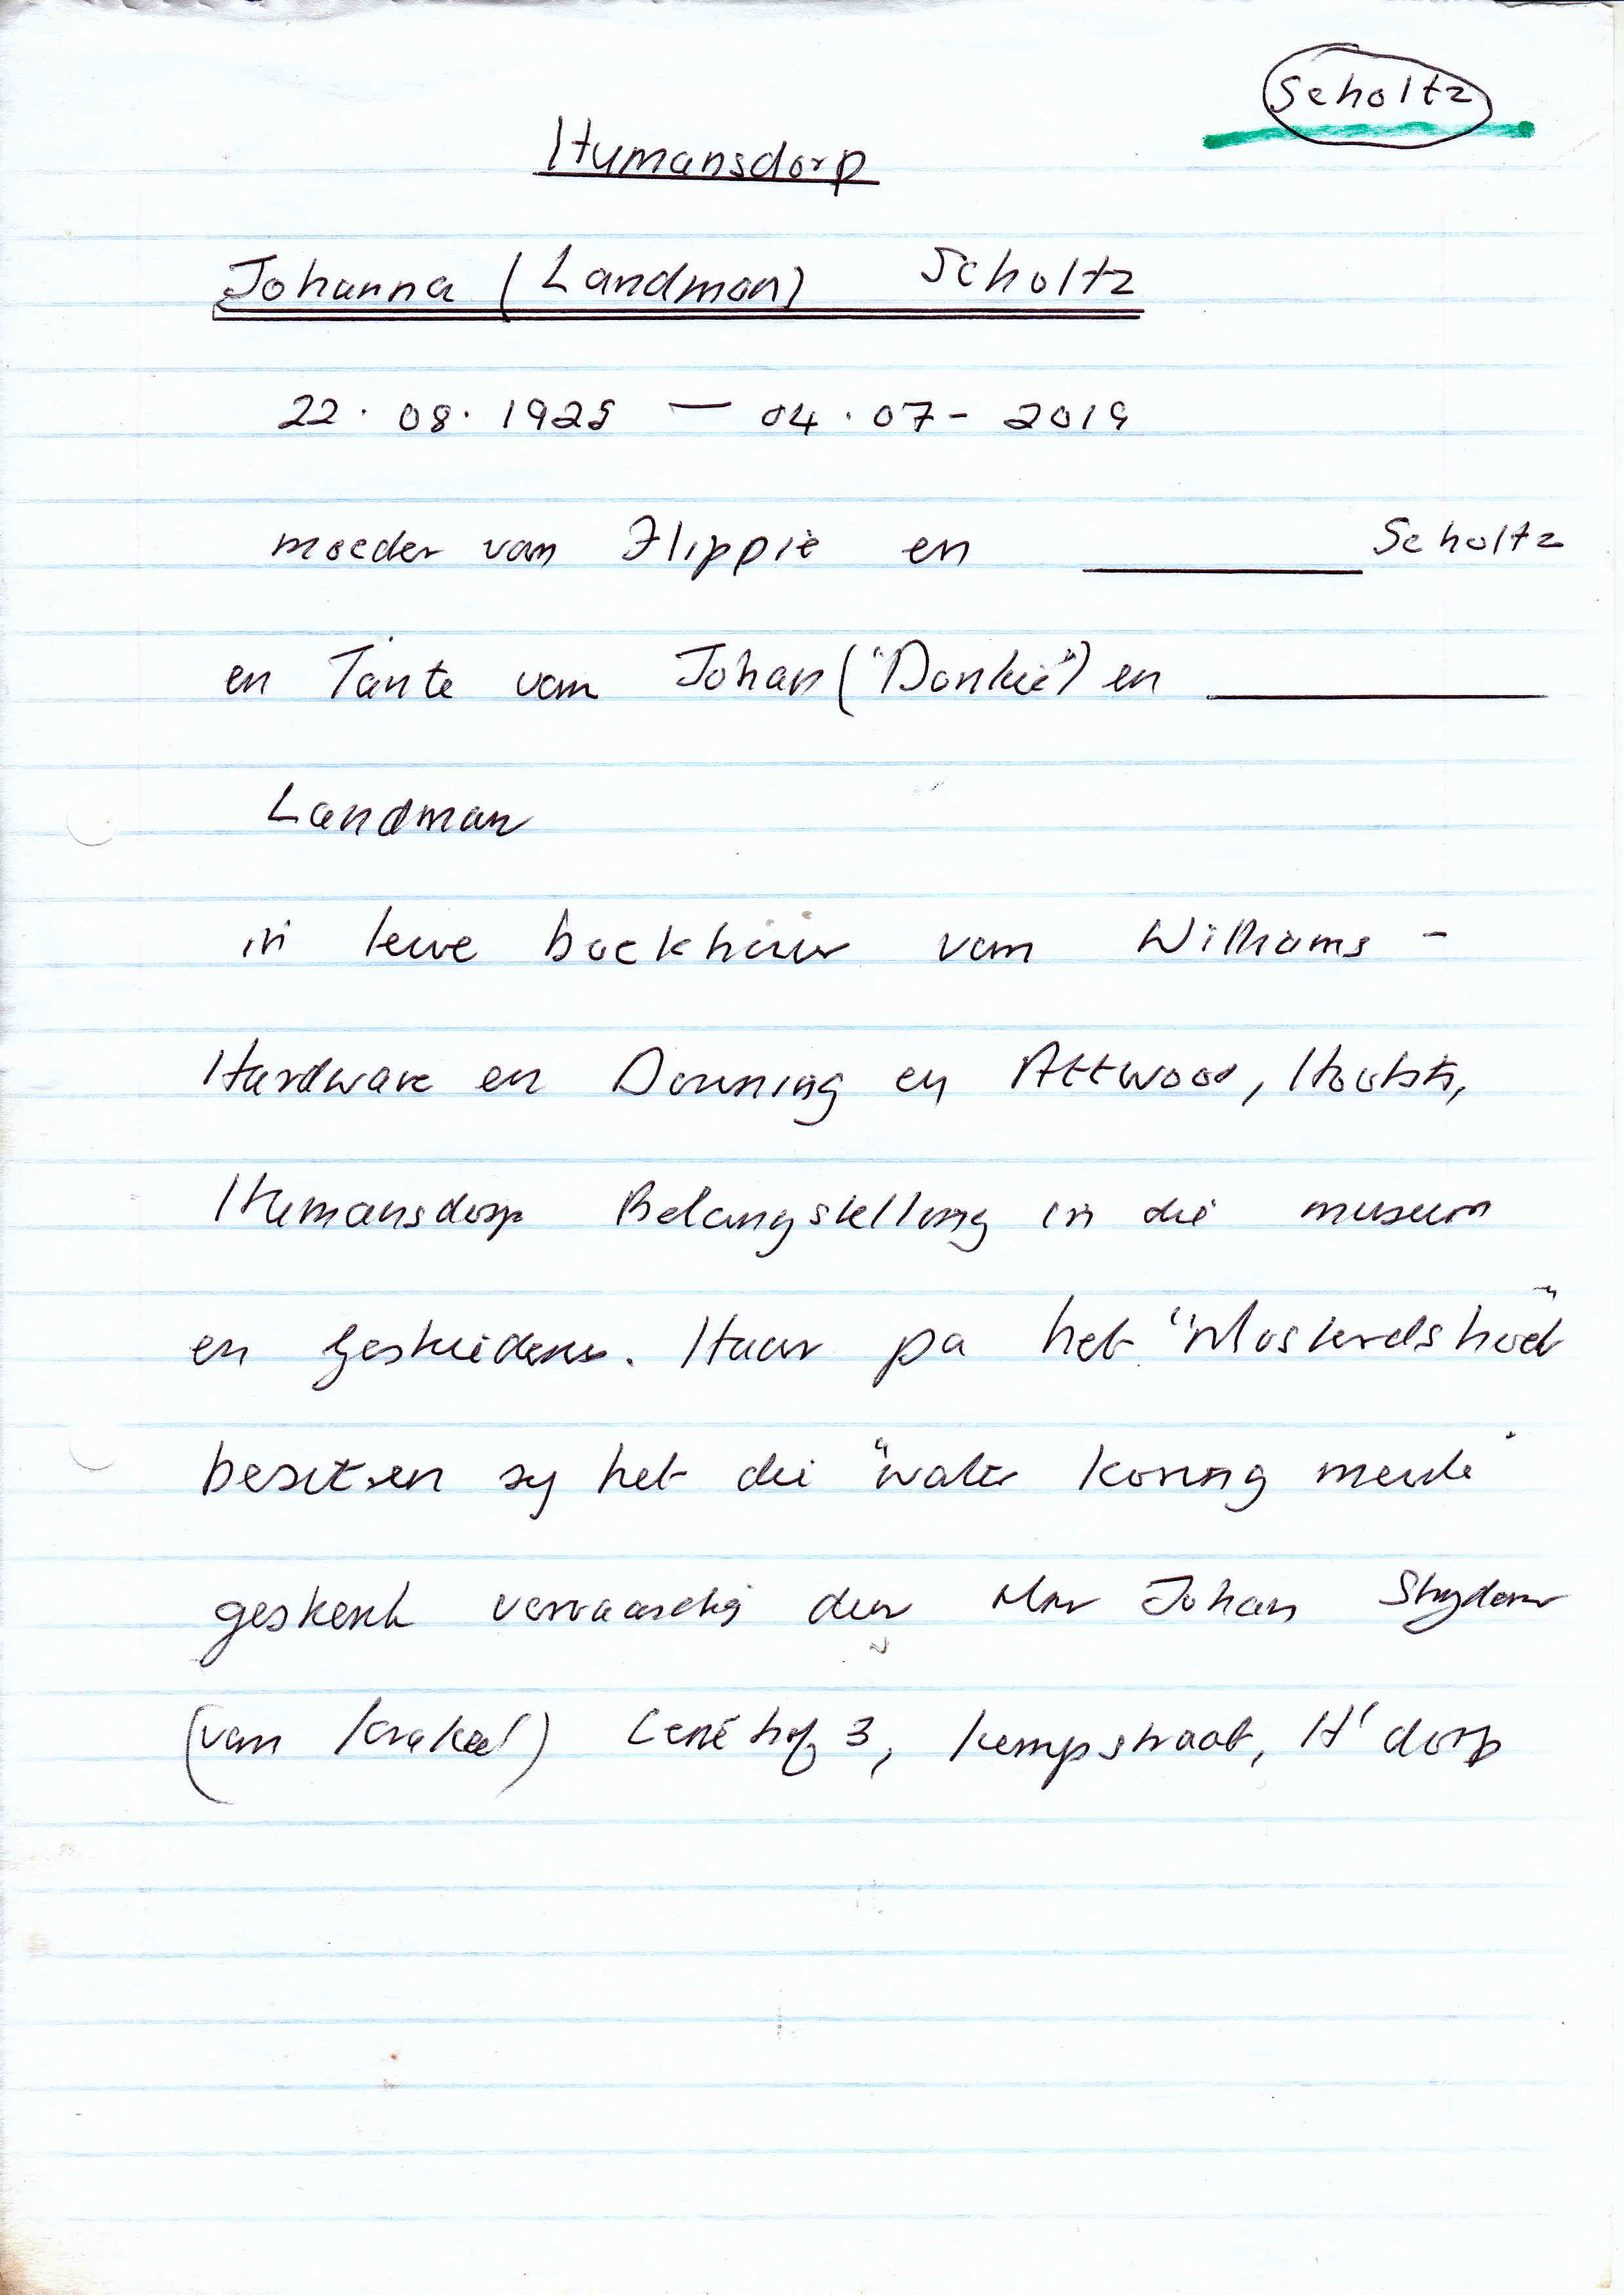 Scholtz
Humansdorp
Johanna (Landman) Scholtz
22. 08. 1925 — 04. 07- 2019
moeder van Flippie en ________ Scholtz
en Tante van Johan ("Donkie") en ________
Landman
in lewe boekhouer van Williams -
Hardware en Donning en Attwood,
Humansdorp Belangstelling in die museum
en Geskiedenis. Haar pa het "Mosterdshoek"
besit en sy het die "water koring meule"
geskenk vervaardig deur Mnr Johan Strydom
(van Krakeel) Lenéhof 3, Kempstraat, H'dorp